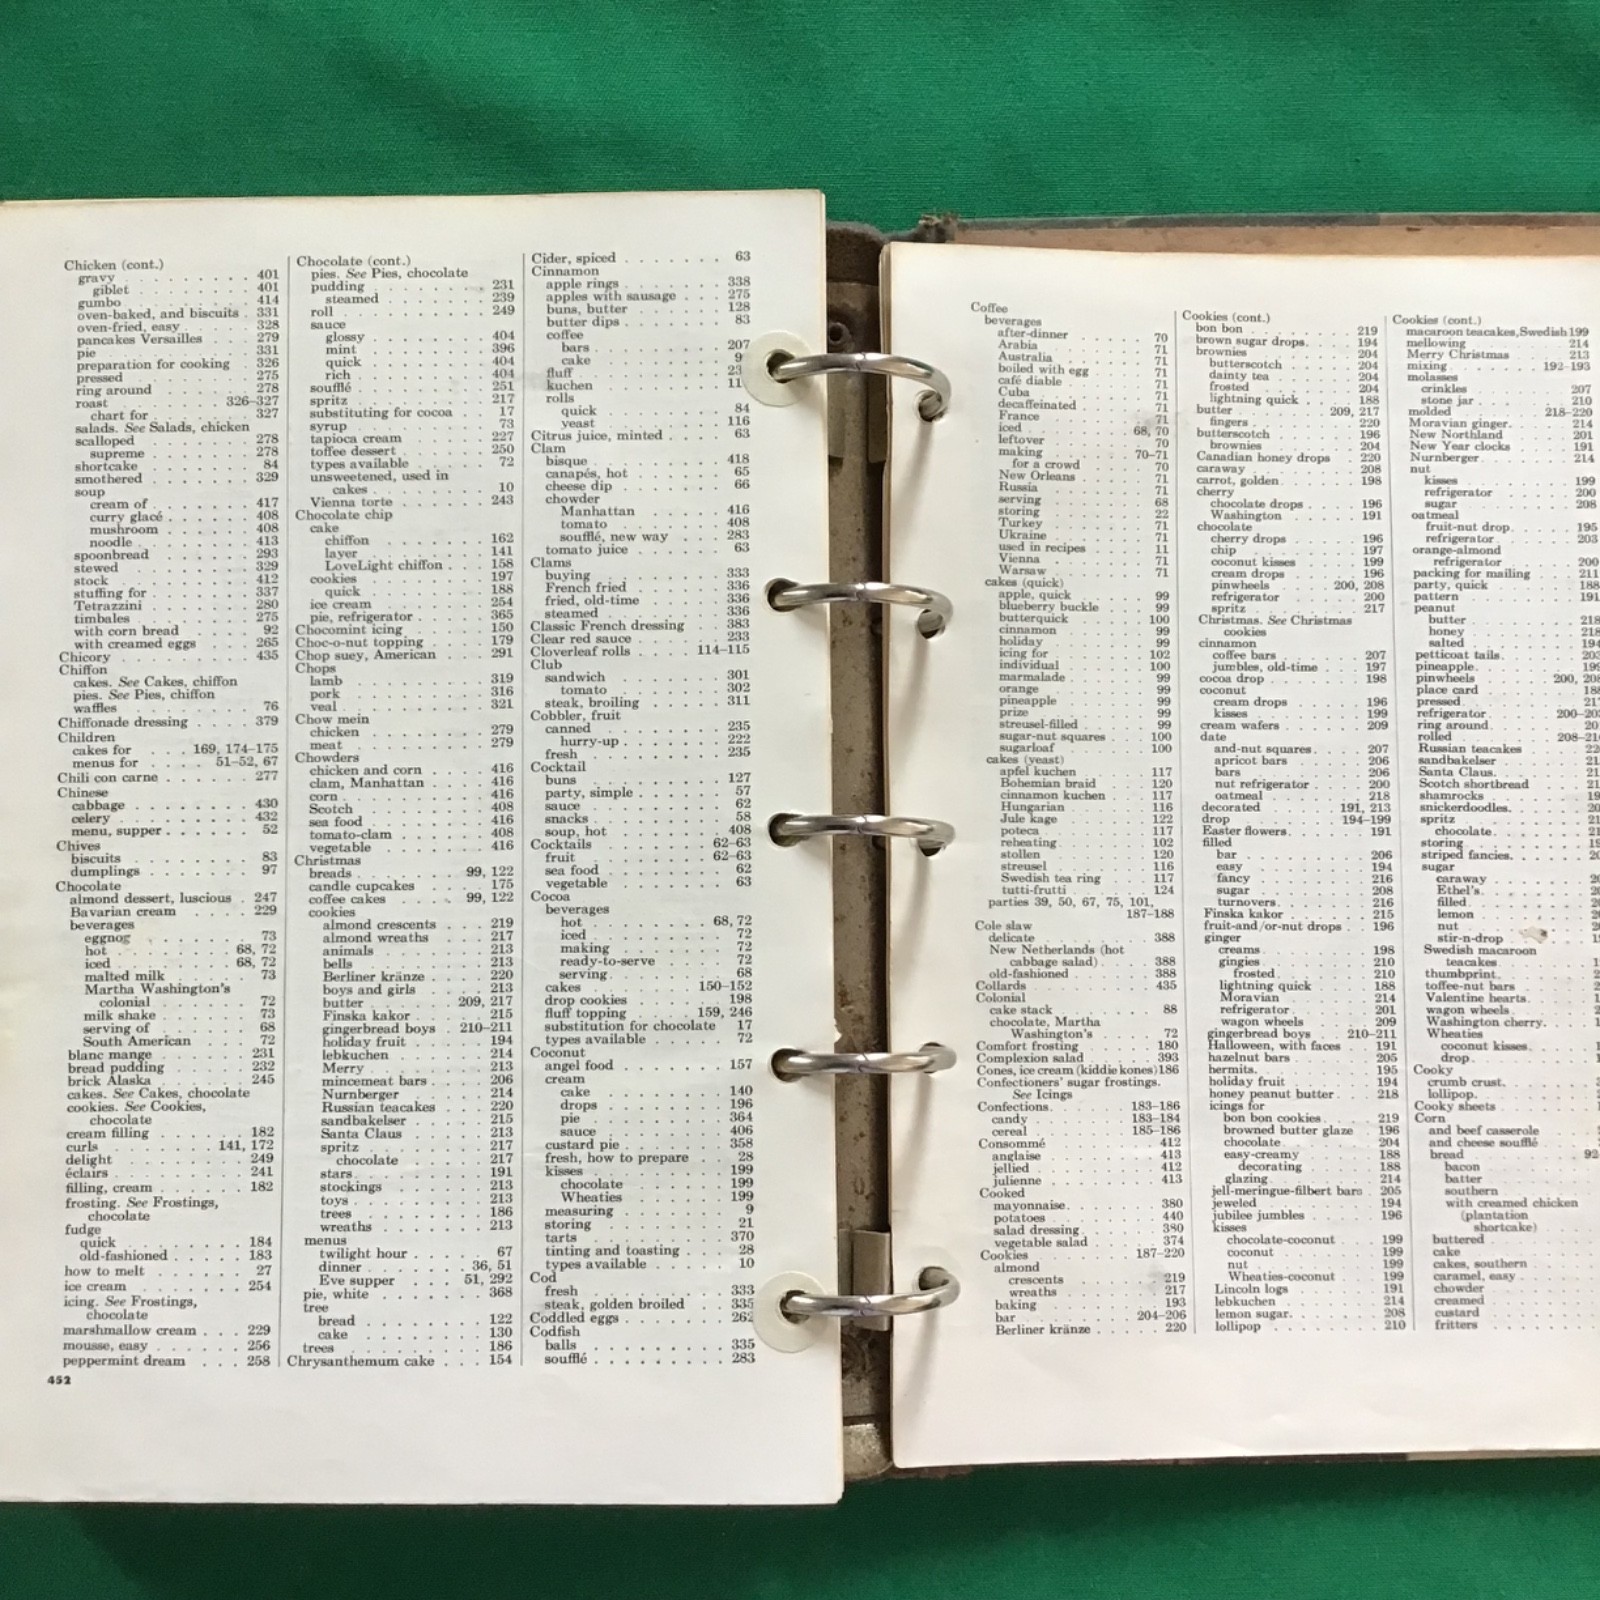 Chicken (cont.)
gravy . . . . . . . . 401
giblet . . . . . . . 401
gumbo . . . . . . . . 414
oven-baked, and biscuits . 331
oven-fried, easy . . . . . 328
pancakes Versailles . . . . 279
pie . . . . . . . . . 331
preparation for cooking . . 326
pressed . . . . . . . . 275
ring around . . . . . . 278
roast . . . . . . 326-327
chart for . . . . . . . 327
salads. See Salads, chicken
scalloped . . . . . . . 278
supreme . . . . . . . 278
shortcake . . . . . . . 84
smothered . . . . . . . 329
soup
cream of . . . . . . . 417
curry glacé . . . . . . 408
mushroom . . . . . . 408
noodle . . . . . . . . 413
spoonbread . . . . . . . 293
stewed . . . . . . . . 329
stock . . . . . . . . 412
stuffing for . . . . . . . 337
Tetrazzini . . . . . . . 280
timbales . . . . . . . . 275
with corn bread . . . . . 92
with creamed eggs . . . . 265
Chicory . . . . . . . . . 435
Chiffon
cakes. See Cakes, chiffon
pies. See Pies, chiffon
waffles . . . . . . . . . 76
Chiffonade dressing . . . . 379
Children
cakes for . . . . 169, 174-175
menus for . . . . 51-52, 67
Chili con carne . . . . . . 277
Chinese
cabbage . . . . . . . . 430
celery . . . . . . . . . 432
menu, supper . . . . . . . 52
Chives
biscuits . . . . . . . . . 83
dumplings . . . . . . . . 97
Chocolate
almond dessert, luscious . 247
Bavarian cream . . . . . 229
beverages
eggnog . . . . . . . . 73
hot . . . . . . . . 68, 72
iced . . . . . . . . 68, 72
malted milk . . . . . . 73
Martha Washington's
colonial . . . . . . . . 72
milk shake . . . . . . . 73
serving of . . . . . . . 68
South American . . . . . 72
blanc mange . . . . . . 231
bread pudding . . . . . . 232
brick Alaska . . . . . . . 245
cakes. See Cakes, chocolate
cookies. See Cookies,
chocolate
cream filling . . . . . . . 182
curls . . . . . . . 141, 172
delight . . . . . . . . . 249
éclairs . . . . . . . . . 241
filling, cream . . . . . . 182
frosting. See Frostings,
chocolate
fudge
quick . . . . . . . . . 184
old-fashioned . . . . . . 183
how to melt . . . . . . . 27
ice cream . . . . . . . . 254
icing. See Frostings,
chocolate
marshmallow cream . . . 229
mousse, easy . . . . . . 256
peppermint dream . . . . 258
452
Chocolate (cont.)
pies. See Pies, chocolate
pudding . . . . . . . . 231
steamed . . . . . . . . 239
roll . . . . . . . . . . 249
sauce
glossy . . . . . . . . 404
mint . . . . . . . . . 396
quick . . . . . . . . . 404
rich . . . . . . . . . 404
soufflé . . . . . . . . . 251
spritz . . . . . . . . . 217
substituting for cocoa . . . 17
syrup . . . . . . . . . . 73
tapioca cream . . . . . . 227
toffee dessert . . . . . . 250
types available . . . . . . 72
unsweetened, used in
cakes . . . . . . . . . 10
Vienna torte . . . . . . . 243
Chocolate chip
cake
chiffon . . . . . . . . 162
layer . . . . . . . . . 141
LoveLight chiffon . . . . 158
cookies . . . . . . . . . 197
quick . . . . . . . . . 188
ice cream . . . . . . . . 254
pie, refrigerator . . . . . 365
Chocomint icing . . . . . . 150
Choc-o-nut topping . . . . . 179
Chop suey, American . . . . 291
Chops
lamb . . . . . . . . . . 319
pork . . . . . . . . . . 316
veal . . . . . . . . . . 321
Chow mein
chicken . . . . . . . . . 279
meat . . . . . . . . . . 279
Chowders
chicken and corn . . . . . 416
clam, Manhattan . . . . . 416
corn . . . . . . . . . . 416
Scotch . . . . . . . . . 408
sea food . . . . . . . . 416
tomato-clam . . . . . . . 408
vegetable . . . . . . . . 416
Christmas
breads . . . . . . . 99, 122
candle cupcakes . . . . . 175
coffee cakes . . . . . 99, 122
cookies
almond crescents . . . . 219
almond wreaths . . . . . 217
animals . . . . . . . . 213
bells . . . . . . . . . 213
Berliner kränze . . . . . 220
boys and girls . . . . . 213
butter . . . . . . 209, 217
Finska kakor . . . . . . 215
gingerbread boys . 210-211
holiday fruit . . . . . . 194
lebkuchen . . . . . . . 214
Merry . . . . . . . . . 213
mincemeat bars . . . . . 206
Nurnberger . . . . . . . 214
Russian teacakes . . . . 220
sandbakelser . . . . . . 215
Santa Claus . . . . . . 213
spritz . . . . . . . . . 217
chocolate . . . . . . . 217
stars . . . . . . . . . 191
stockings . . . . . . . 213
toys . . . . . . . . . 213
trees . . . . . . . . . 186
wreaths . . . . . . . . 213
menus
twilight hour . . . . . . 67
dinner . . . . . . . 36, 51
Eve supper . . . . 51, 292
pie, white . . . . . . . . 368
tree
bread . . . . . . . . . 122
cake . . . . . . . . . 130
trees . . . . . . . . . . 186
Chrysanthemum cake . . . 154
Cider, spiced . . . . . . . 63
Cinnamon
apple rings . . . . . . . 338
apples with sausage . . . 275
buns, butter . . . . . . . 128
butter dips . . . . . . . . 83
coffee
bars . . . . . . . . . 207
cake . . . . . . . . .
fluff . . . . . . . . . .
kuchen . . . . . . . . .
rolls
quick . . . . . . . . . 84
yeast . . . . . . . . . 116
Citrus juice, minted . . . . . 63
Clam
bisque . . . . . . . . . 418
canapés, hot . . . . . . . 65
cheese dip . . . . . . . . 66
chowder
Manhattan . . . . . . . 416
tomato . . . . . . . . 408
soufflé, new way . . . . 283
tomato juice . . . . . . . 63
Clams
buying . . . . . . . . . 333
French fried . . . . . . . 336
fried, old-time . . . . . . 336
steamed . . . . . . . . . 336
Classic French dressing . . . 383
Clear red sauce . . . . . . 233
Cloverleaf rolls . . . . 114-115
Club
sandwich . . . . . . . . 301
tomato . . . . . . . . 302
steak, broiling . . . . . . 311
Cobbler, fruit
canned . . . . . . . . . 235
hurry-up . . . . . . . . 222
fresh . . . . . . . . . . 235
Cocktail
buns . . . . . . . . . . 127
party, simple . . . . . . . 57
sauce . . . . . . . . . . 62
snacks . . . . . . . . . . 58
soup, hot . . . . . . . . 408
Cocktails . . . . . . . 62-63
fruit . . . . . . . . 62-63
sea food . . . . . . . . . 62
vegetable . . . . . . . . . 63
Cocoa
beverages
hot . . . . . . . . 68, 72
iced . . . . . . . . . . 72
making . . . . . . . . . 72
ready-to-serve . . . . . . 72
serving . . . . . . . . . 68
cakes . . . . . . . 150-152
drop cookies . . . . . . . 198
fluff topping . . . . 159, 246
substitution for chocolate 17
types available . . . . . . 72
Coconut
angel food . . . . . . . . 157
cream
cake . . . . . . . . . 140
drops . . . . . . . . . 196
pie . . . . . . . . . . 364
sauce . . . . . . . . . 406
custard pie . . . . . . . 358
fresh, how to prepare . . . 28
kisses . . . . . . . . . . 199
chocolate . . . . . . . 199
Wheaties . . . . . . . . 199
measuring . . . . . . . . 9
storing . . . . . . . . . . 21
tarts . . . . . . . . . . 370
tinting and toasting . . . . 28
types available . . . . . . 10
Cod
fresh . . . . . . . . . . 333
steak, golden broiled . . . 335
Coddled eggs . . . . . . . 262
Codfish
balls . . . . . . . . . . 335
soufflé . . . . . . . . . 283
Coffee
beverages
after-dinner . . . . . . . 70
Arabia . . . . . . . . . 71
Australia . . . . . . . . 71
boiled with egg . . . . . 71
café diable . . . . . . . 71
Cuba . . . . . . . . . 71
decaffeinated . . . . . . 71
France . . . . . . . . . 71
iced . . . . . . . . 68, 70
leftover . . . . . . . . 70
making . . . . . . . 70-71
for a crowd . . . . . . 70
New Orleans . . . . . . 71
Russia . . . . . . . . . 71
serving . . . . . . . . . 68
storing . . . . . . . . . 22
Turkey . . . . . . . . . 71
Ukraine . . . . . . . . 71
used in recipes . . . . . 11
Vienna . . . . . . . . . 71
Warsaw . . . . . . . . 71
cakes (quick)
apple, quick . . . . . . . 99
blueberry buckle . . . . . 99
butterquick . . . . . . . 100
cinnamon . . . . . . . . 99
holiday . . . . . . . . . 99
icing for . . . . . . . . 102
individual . . . . . . . 100
marmalade . . . . . . . 99
orange . . . . . . . . . 99
pineapple . . . . . . . . 99
prize . . . . . . . . . . 99
streusel-filled . . . . . . 99
sugar-nut squares . . . . 100
sugarloaf . . . . . . . . 100
cakes (yeast)
apfel kuchen . . . . . . 117
Bohemian braid . . . . . 120
cinnamon kuchen . . . . 117
Hungarian . . . . . . . 116
Jule kage . . . . . . . . 122
poteca . . . . . . . . . 117
reheating . . . . . . . . 102
stollen . . . . . . . . . 120
streusel . . . . . . . . 116
Swedish tea ring . . . . 117
tutti-frutti . . . . . . . 124
parties 39, 50, 67, 75, 101,
187-188
Cole slaw
delicate . . . . . . . . . 388
New Netherlands (hot
cabbage salad) . . . . . 388
old-fashioned . . . . . . . 388
Collards . . . . . . . . . 435
Colonial
cake stack . . . . . . . . 88
chocolate, Martha
Washington's . . . . . . 72
Comfort frosting . . . . . . 180
Complexion salad . . . . . 393
Cones, ice cream (kiddie kones) 186
Confectioners' sugar frostings.
See Icings
Confections . . . . . 183-186
candy . . . . . . . 183-184
cereal . . . . . . . 185-186
Consommé . . . . . . . . 412
anglaise . . . . . . . . . 413
jellied . . . . . . . . . 412
julienne . . . . . . . . . 413
Cooked
mayonnaise . . . . . . . 380
potatoes . . . . . . . . . 440
salad dressing . . . . . . 380
vegetable salad . . . . . . 374
Cookies . . . . . . . 187-220
almond
crescents . . . . . . . 219
wreaths . . . . . . . . 217
baking . . . . . . . . . 193
bar . . . . . . . . 204-206
Berliner kränze . . . . . 220
Cookies (cont.)
bon bon . . . . . . . . . 219
brown sugar drops . . . . 194
brownies . . . . . . . . 204
butterscotch . . . . . . 204
dainty tea . . . . . . . 204
frosted . . . . . . . . 204
lightning quick . . . . . 188
butter . . . . . . 209, 217
fingers . . . . . . . . . 220
butterscotch . . . . . . . 196
brownies . . . . . . . . 204
Canadian honey drops . . . 220
caraway . . . . . . . . . 208
carrot, golden . . . . . . 198
cherry
chocolate drops . . . . . 196
Washington . . . . . . . 191
chocolate
cherry drops . . . . . . 196
chip . . . . . . . . . . 197
coconut kisses . . . . . 199
cream drops . . . . . . 196
pinwheels . . . . 200, 208
refrigerator . . . . . . 200
spritz . . . . . . . . . 217
Christmas. See Christmas
cookies
cinnamon
coffee bars . . . . . . . 207
jumbles, old-time . . . . 197
cocoa drop . . . . . . . . 198
coconut
cream drops . . . . . . 196
kisses . . . . . . . . . 199
cream wafers . . . . . . 209
date
and-nut squares . . . . . 207
apricot bars . . . . . . 206
bars . . . . . . . . . . 206
nut refrigerator . . . . . 200
oatmeal . . . . . . . . 218
decorated . . . . . 191, 213
drop . . . . . . . . 194-199
Easter flowers . . . . . . 191
filled
bar . . . . . . . . . . 206
easy . . . . . . . . . . 194
fancy . . . . . . . . . 216
sugar . . . . . . . . . 208
turnovers . . . . . . . 216
Finska kakor . . . . . . . 215
fruit-and/or-nut drops . . 196
ginger
creams . . . . . . . . 198
gingies . . . . . . . . 210
frosted . . . . . . . . 210
lightning quick . . . . . 188
Moravian . . . . . . . . 214
refrigerator . . . . . . 201
wagon wheels . . . . . . 209
gingerbread boys . . 210-211
Halloween, with faces . . . 191
hazelnut bars . . . . . . 205
hermits . . . . . . . . . 195
holiday fruit . . . . . . . 194
honey peanut butter . . . 218
icings for
bon bon cookies . . . . . 219
browned butter glaze . . 196
chocolate . . . . . . . 204
easy-creamy . . . . . . 188
decorating . . . . . . 188
glazing . . . . . . . . 214
jell-meringue-filbert bars . 205
jeweled . . . . . . . . . 194
jubilee jumbles . . . . . . 196
kisses
chocolate-coconut . . . . 199
coconut . . . . . . . . 199
nut . . . . . . . . . . 199
Wheaties-coconut . . . . 199
Lincoln logs . . . . . . . 191
lebkuchen . . . . . . . . 214
lemon sugar . . . . . . . 208
lollipop . . . . . . . . . 210
Cookies (cont.)
macaroon teacakes, Swedish 199
mellowing . . . . . . . . 214
Merry Christmas . . . . . 213
mixing . . . . . . 192-193
molasses
crinkles . . . . . . . . 207
stone jar . . . . . . . . 210
molded . . . . . . 218-220
Moravian ginger . . . . . 214
New Northland . . . . . . 201
New Year clocks . . . . . 191
Nurnberger . . . . . . . 214
nut
kisses . . . . . . . . . 199
refrigerator . . . . . . 200
sugar . . . . . . . . . 208
oatmeal
fruit-nut drop . . . . . . 195
refrigerator . . . . . . 203
orange-almond
refrigerator . . . . . . 200
packing for mailing . . . . 211
party, quick . . . . . . . 188
pattern . . . . . . . . . 191
peanut
butter . . . . . . . . . 218
honey . . . . . . . . . 218
salted . . . . . . . . . 194
petticoat tails . . . . . .
pineapple . . . . . . . .
pinwheels . . . . . 200,
place card . . . . . . . .
pressed . . . . . . . . .
refrigerator . . . . . .
ring around . . . . . . .
rolled . . . . . . . . .
Russian teacakes . . . .
sandbakelser . . . . . .
Santa Claus . . . . . . .
Scotch shortbread . . . .
shamrocks . . . . . . . .
snickerdoodles . . . . . .
spritz . . . . . . . . .
chocolate . . . . . . .
storing . . . . . . . . .
striped fancies . . . . . .
sugar
caraway . . . . . . . .
Ethel's . . . . . . . .
filled . . . . . . . . .
lemon . . . . . . . . .
nut . . . . . . . . . .
stir-n-drop . . . . . . .
Swedish macaroon
teacakes . . . . . . .
thumbprint . . . . . . .
toffee-nut bars . . . . . .
Valentine hearts . . . . .
wagon wheels . . . . . .
Washington cherry . . . .
Wheaties
coconut kisses . . . . .
drop . . . . . . . . .
Cooky
crumb crust . . . . . . .
lollipop . . . . . . . . .
Cooky sheets . . . . . . .
Corn
and beef casserole . . . .
and cheese soufflé . . . .
bread . . . . . . . . .
bacon
batter
southern
with creamed chicken
(plantation
shortcake)
buttered
cake
cakes, southern
caramel, easy
chowder
creamed
custard
fritters